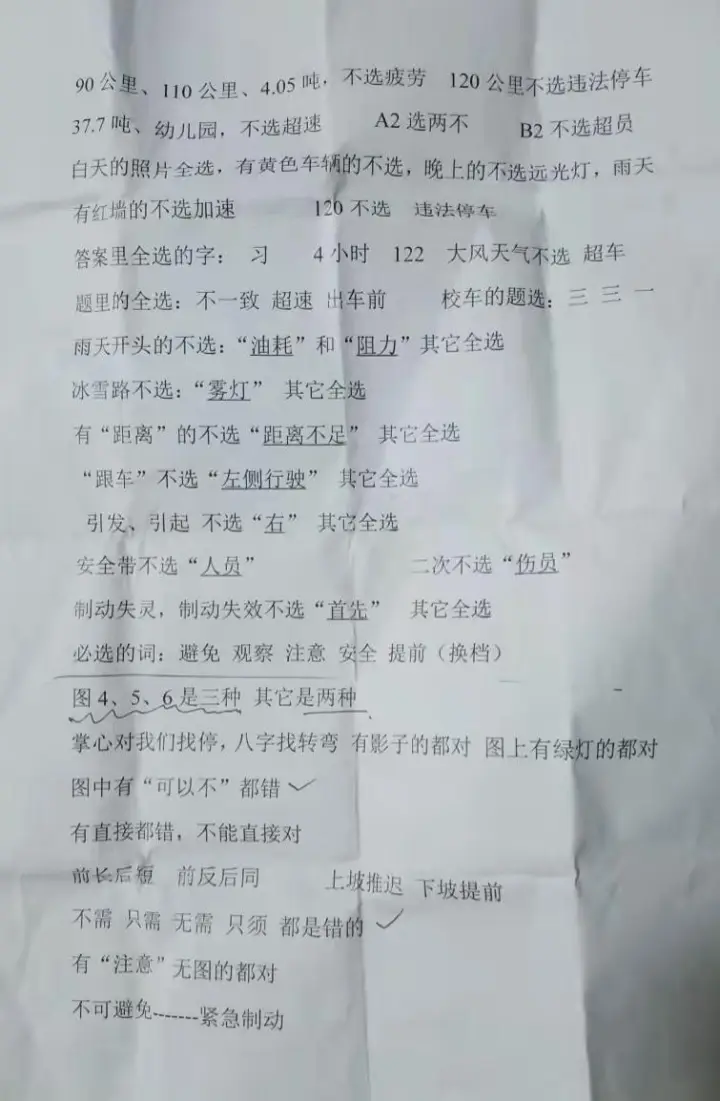 90公里、110公里、4.05吨，不选疲劳 120公里不选违法停车
37.7吨、幼儿园，不选超速 A2选两不 B2不选超员
白天的照片全选，有黄色车辆的不选，晚上的不选远光灯，雨天
有红墙的不选加速 120不选 违法停车
答案里全选的字： 习 4小时 122 大风天气不选 超车
题里的全选：不一致 超速 出车前 校车的题选：三 三 一
雨天开头的不选：“油耗”和“阻力”其它全选
冰雪路不选：“雾灯” 其它全选
有“距离”的不选“距离不足” 其它全选
“跟车”不选“左侧行驶” 其它全选
引发、引起 不选“右” 其它全选
安全带不选“人员” 二次不选“伤员”
制动失灵，制动失效不选“首先” 其它全选
必选的词：避免 观察 注意 安全 提前（换档）
图4、5、6是三种 其它是两种
掌心对我们找停，八字找转弯 有影子的都对 图上有绿灯的都对
图中有“可以不”都错
有直接都错，不能直接对
前长后短 前反后同 上坡推迟 下坡提前
不需 只需 无需 只须 都是错的
有“注意”无图的都对
不可避免-------紧急制动